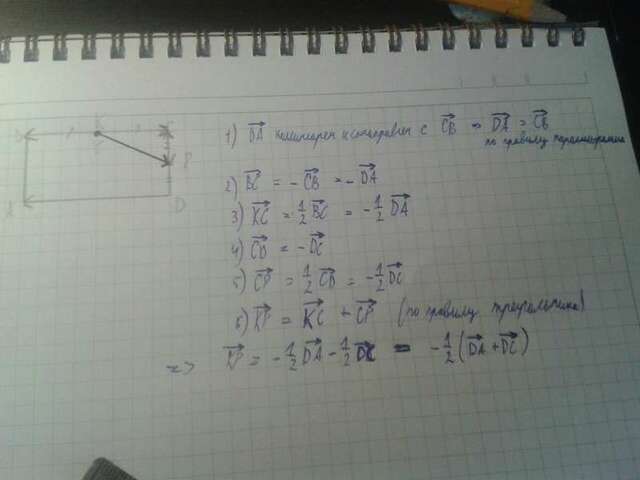 K
P
D
1) DA коллинеарен и сонаправлен с CB ⇒ DA = CB
по правилу параллелограмма
2) BC = -CB = -DA
3) KC = 1/2 BC = -1/2 DA
4) CD = -DC
5) CP = 1/2 CD = -1/2 DC
6) KP = KC + CP (по правилу треугольника)
=> KP = -1/2 DA - 1/2 DC = -1/2 (DA + DC)